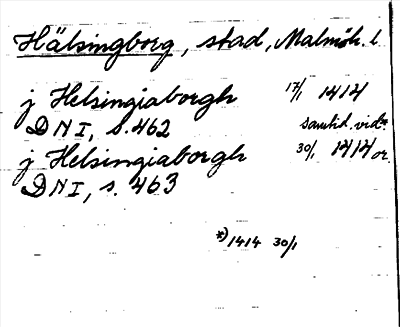 Hälsingborg, stad, Malmöh. l.
j Helsingiaborgh 17/1 1414
DNI, s. 462 samtid. vid.*)
j Helsingiaborgh 30/1 1414 or.
DNI, s. 463
*) 1414 30/1